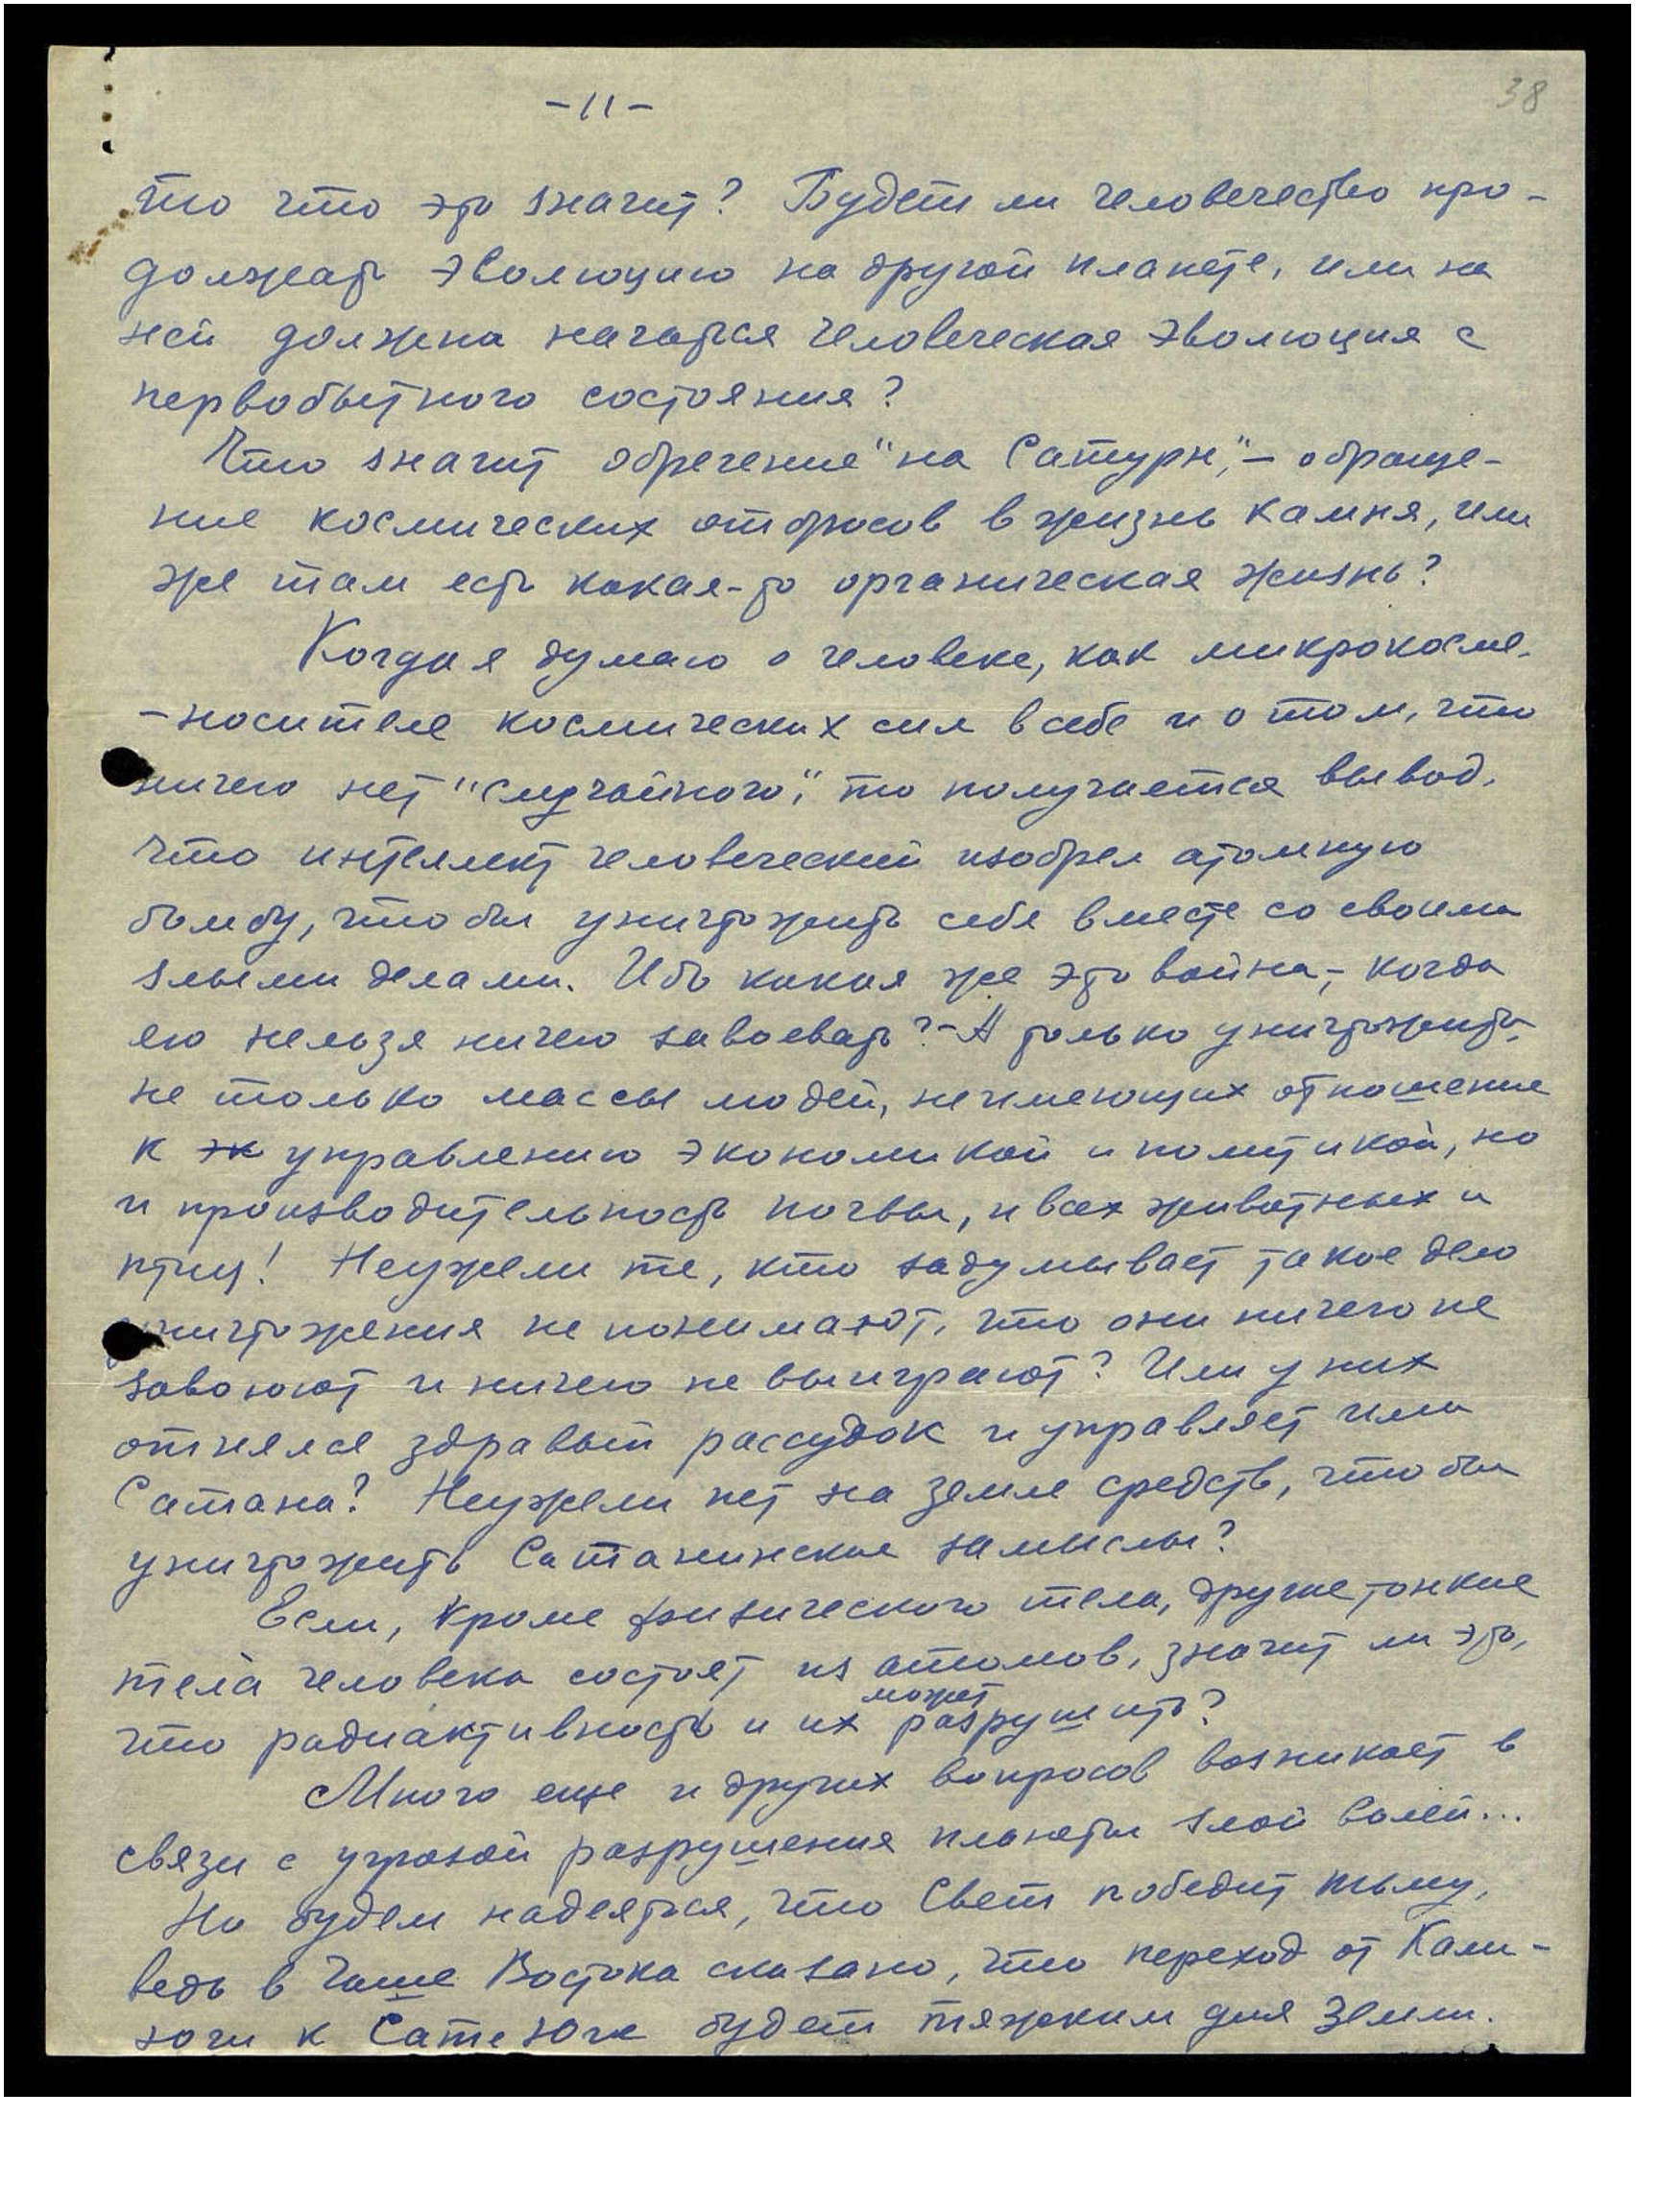 -11-
38
то что это значит? Будет ли человечество про-
должать эволюцию на другой планете, или на
ней должна начаться человеческая эволюция с
первобытного состояния?
Что значит обречение "на Сатурн",- обраще-
ние космических отбросов в жизнь камня, или
же там есть какая-то органическая жизнь?
Когда я думаю о человеке, как микрокосме-
-носителе космических сил в себе и о том, что
ничего нет "случайного", то получается вывод,
что интеллект человеческий изобрел атомную
бомбу, что бы уничтожить себя вместе со своими
злыми делами. Ибо какая же это война,- когда
ею нельзя ничего завоевать?- А только уничтожить,
не только массы людей, не имеющих отношение
к эк управлению экономикой и политикой, но
и производительность почвы, и всех животных и
птиц! Неужели те, кто задумывает такое дело
уничтожения не понимают, что они ничего не
завоюют и ничего не выиграют? Или у них
отнялся здравый рассудок и управляет ими
Сатана? Неужели нет на земле средств, что бы
уничтожить Сатанинские замыслы?
Если, кроме физического тела, другие тонкие
тела человека состоят из атомов, значит ли это,
что радиактивность и их может разрушить?
Много еще и других вопросов возникает в
связи с угрозой разрушения планеты злой волей...
Но будем надеяться, что Свет победит тьму,
ведь в Чаше Востока сказано, что переход от Кали-
юги к Сатие Юге будет тяжким для Земли.